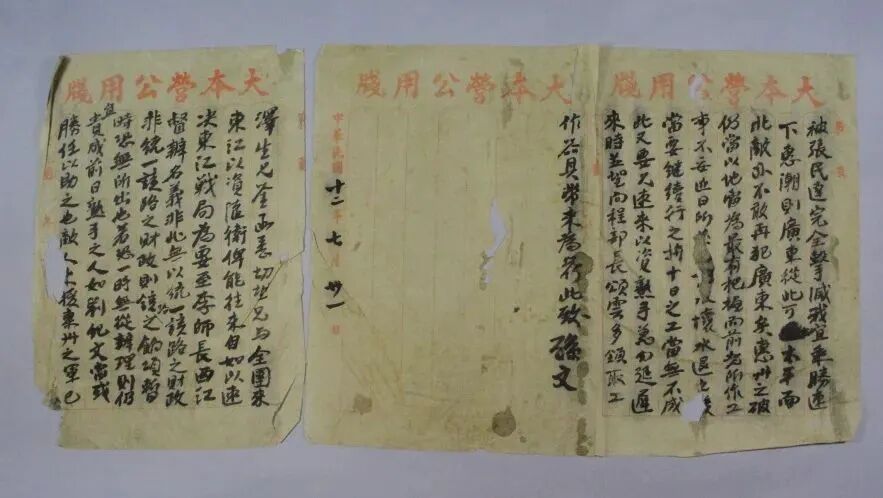 大本營公用牋
澤生兄鑒函悉切望兄與全團來
東江以資衛俾能往來自如以速
決東江戰局為要至李師長西江
督辦名義非此無以統一該路之財政
非統一該路之財政則鏡之餉項暫
時恐無所出也若恐一時無從辦理則仍
宜責成前日熟手之人如劉紀文當或
勝任以助之也敵人上援之軍已
大本營公用牋
被張民達完全擊滅我宜乘勝速
下惠潮則廣東從此可太平而
北敵亦不敢再犯廣東矣惠州之破
仍當以地雷為最有把握而前者所作工
事不妥近日所以壞水退之後
當要繼續行之將十日之工當無不成
此又要兄速來以資熟手萬勿延遲
來時並望向程部長頌雲多領取工
大本營公用牋
作器具帶來為荷此致 孫文
中華民國十二年七月廿一日